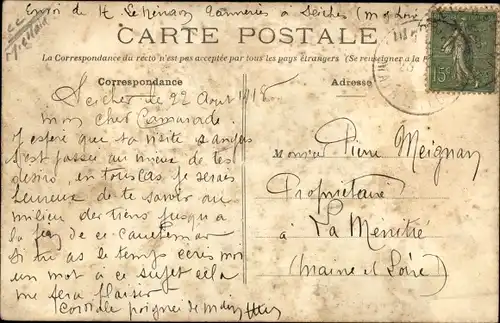 Envoi de H Tanneries à Seiches (M et Loire)
CARTE POSTALE
La Correspondance du recto n'est pas acceptée par tous les pays étrangers (Se renseigner à la
Correspondance
Adresse
15c
Seiches le 22 Aout 1918
Mon cher Camarade.
J'espère que ta visite à Angers
s'est passée au mieux de tes
désirs, en tous cas je serais
heureux de te savoir au
milieu des tiens jusqu'à
la fin de ce cauchemar
Si tu as le temps écris moi
un mot à ce sujet cela
me fera plaisir
Cordiale poignée de main
Monsieur Pierre Meignan
Propriétaire
à La Ménitré
(Maine et Loire)